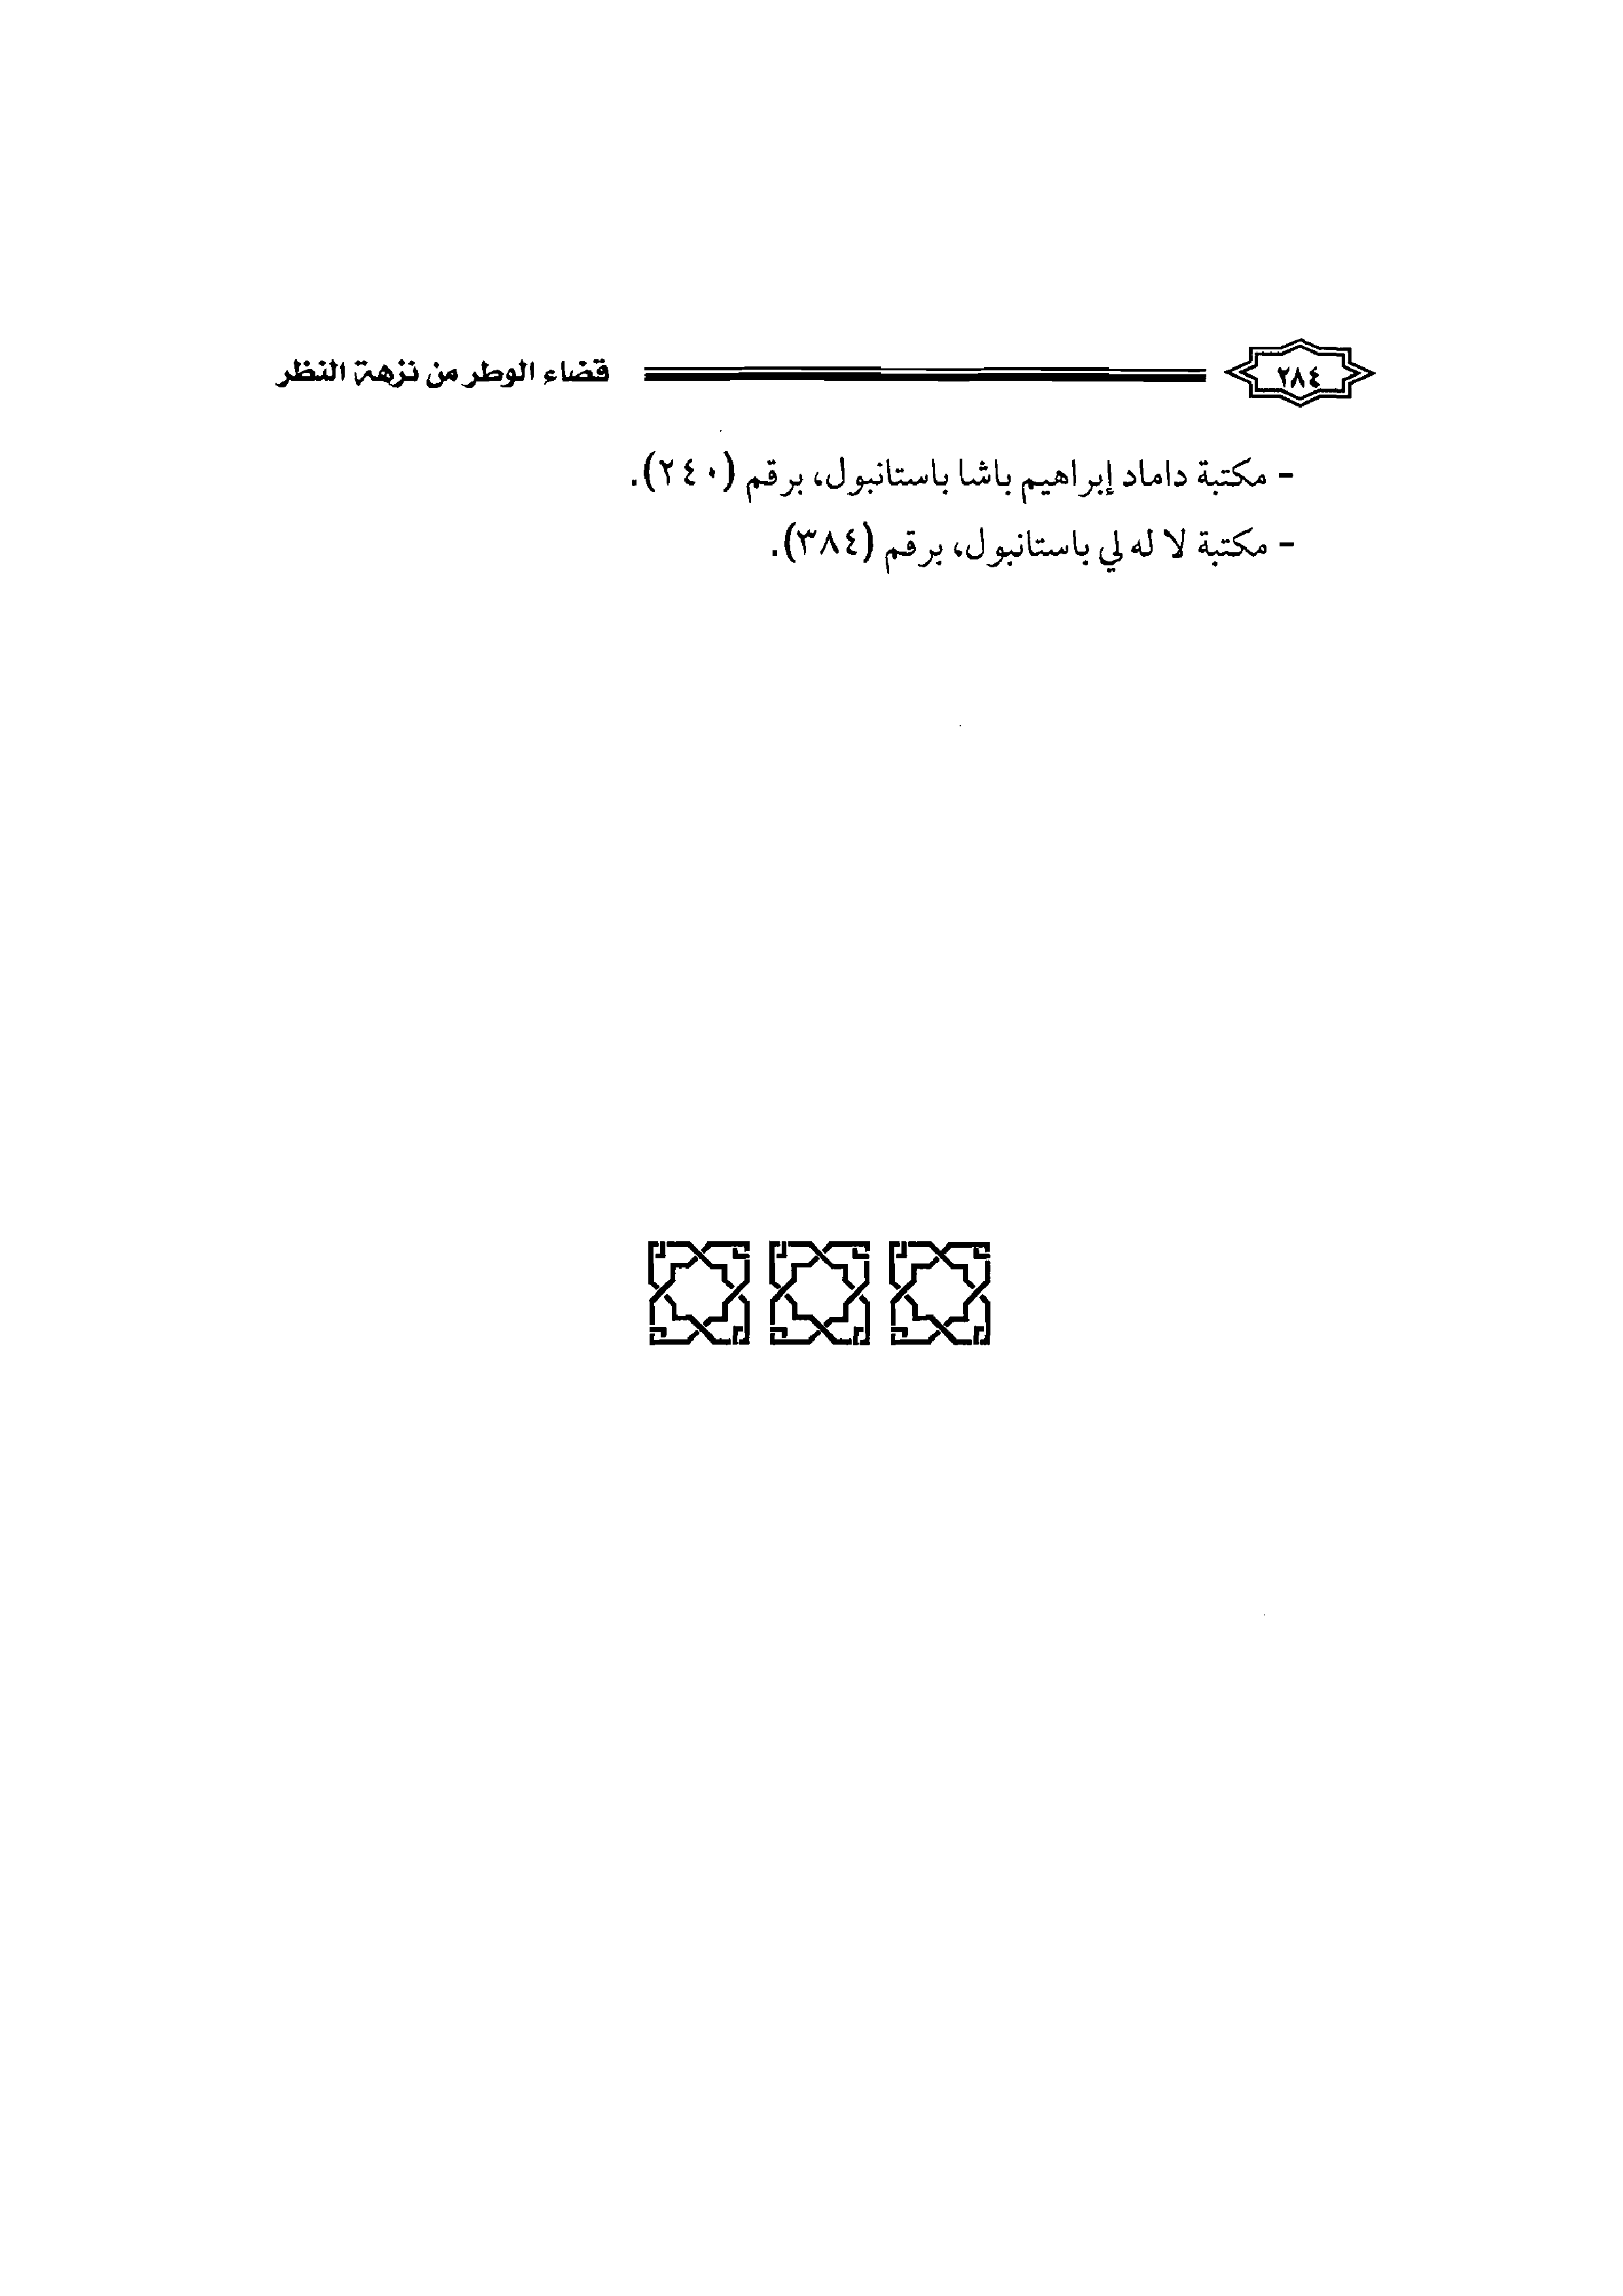 ٢٨٤ قضاء الوطر من نزهة النظر
- مكتبة داماد إبراهيم باشا باستانبول، برقم (٢٤٠).
- مكتبة لا له لي باستانبول، برقم (٣٨٤).